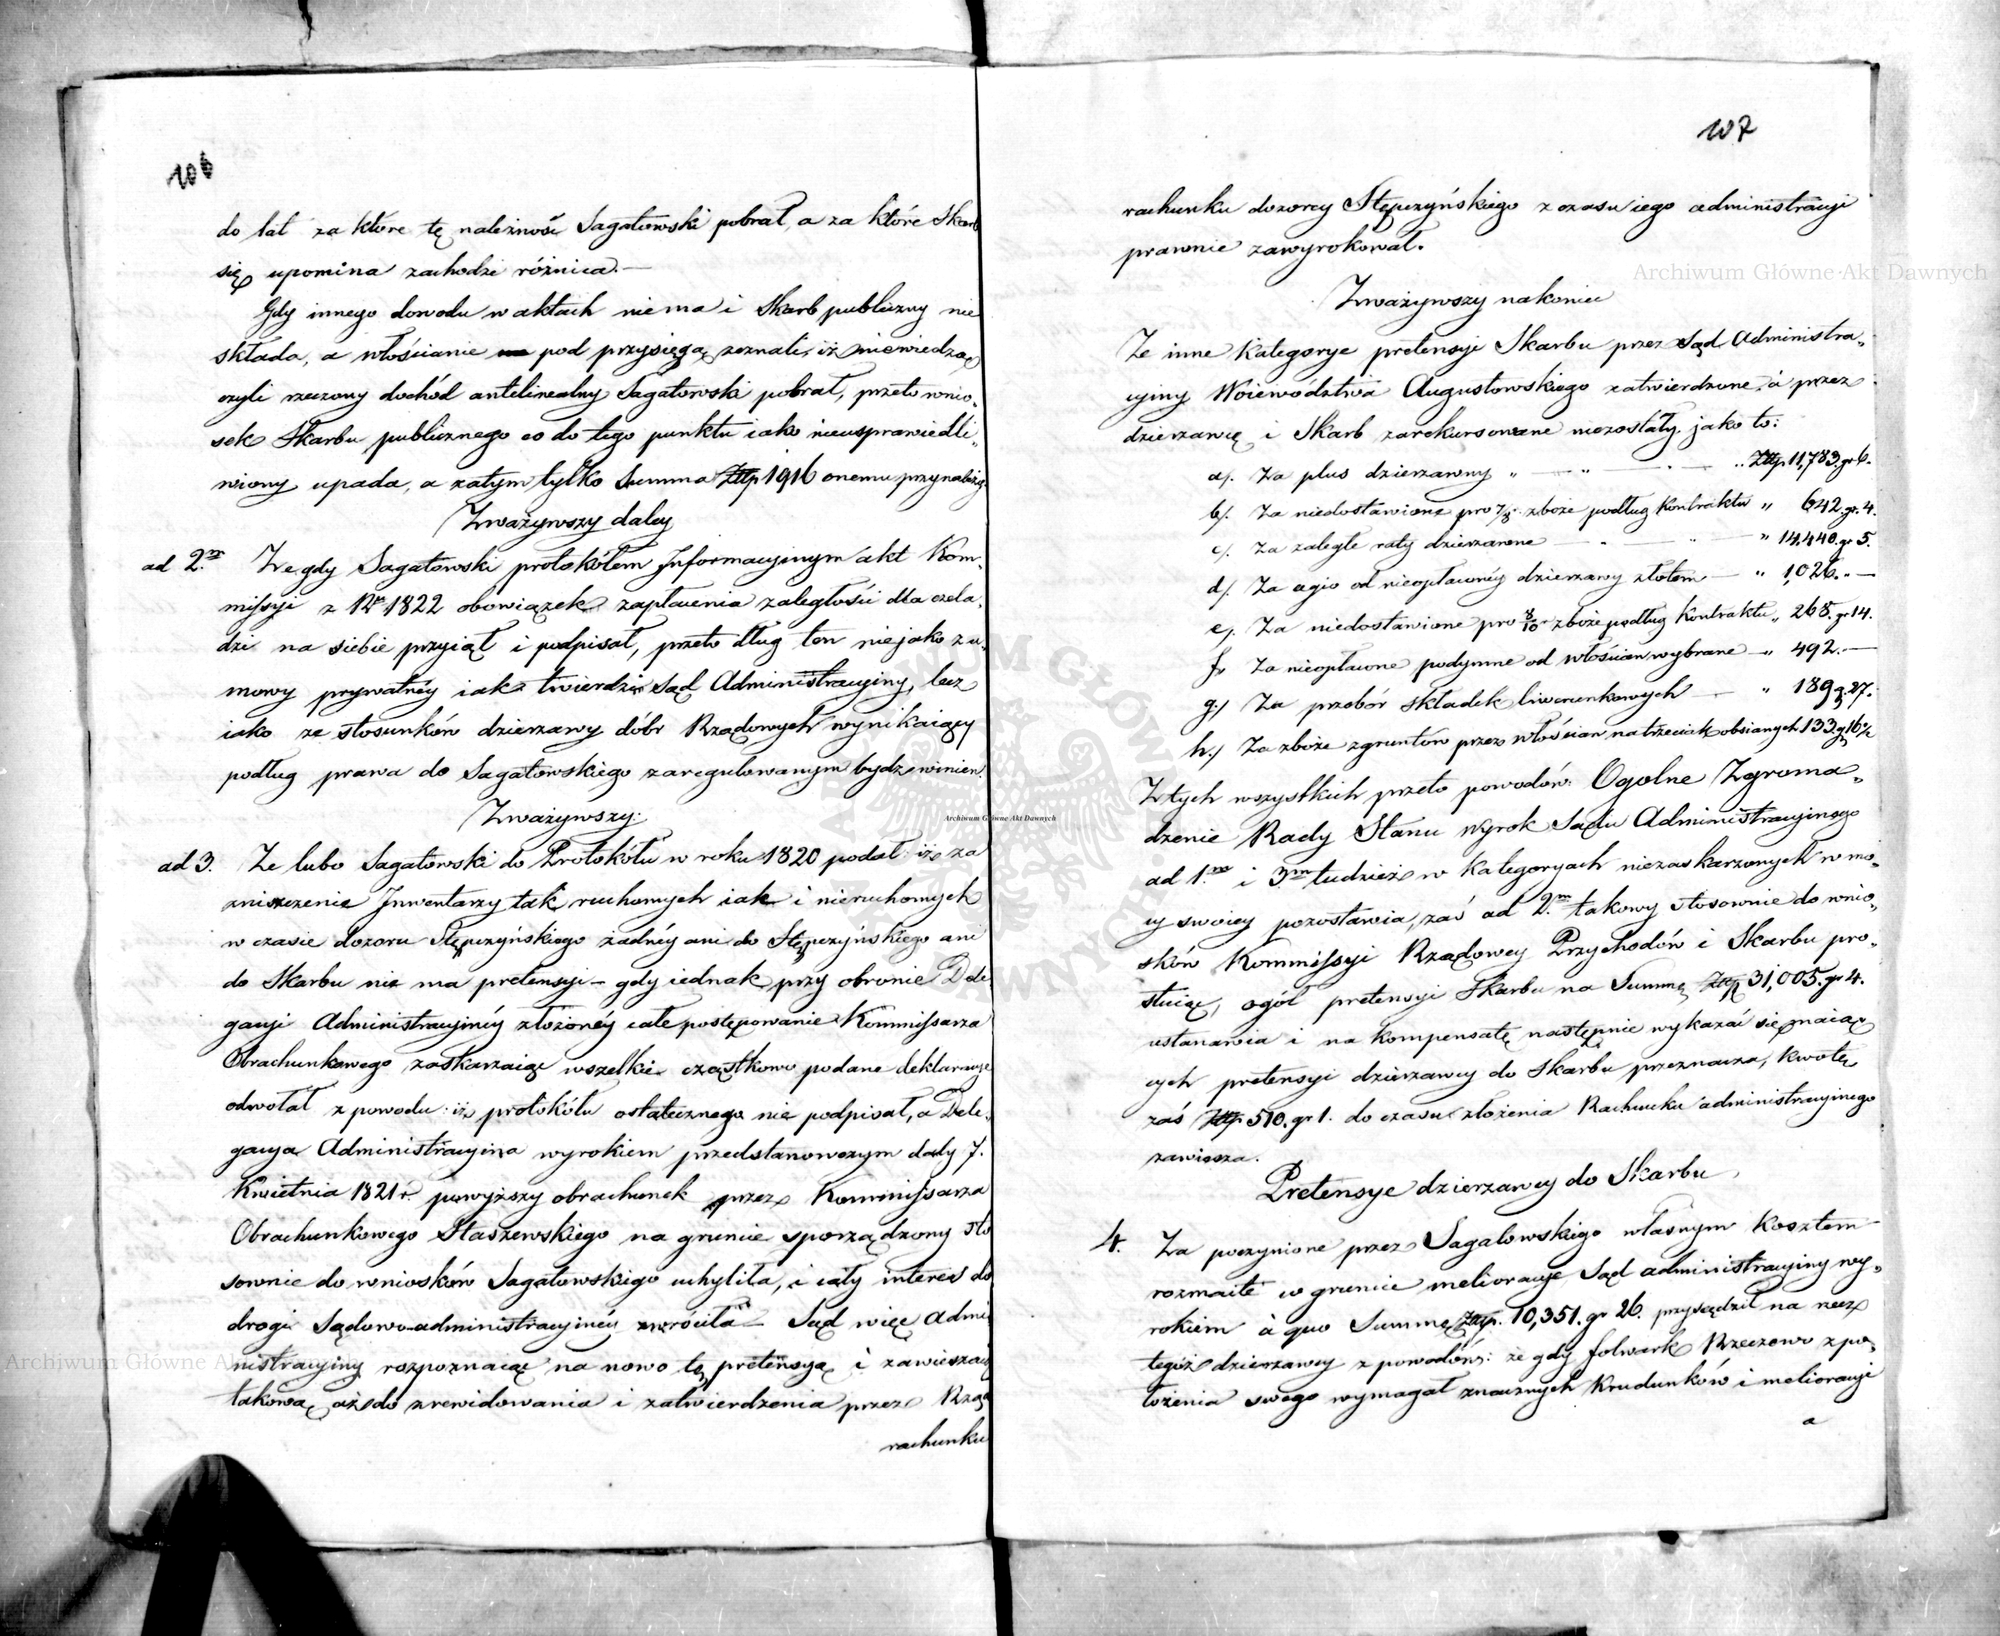 106
do lat za które tę należność Sagatowski pobrał, a za które Skarb
się upomina zachodzi różnica.—
Gdy innego dowodu w aktach nie ma i Skarb publiczny nie
składa, a włościanie pod przysięgą zeznali, iż niewiedzą
czyli rzeczony dochód antelinealny Sagatowski pobrał, przeto wnio„
sek Skarbu publicznego co do tego punktu iako nieusprawiedli„
wiony upada, a zatym tylko Summa Złtp 1916 onemu przynależy.
Zważywszy daley
ad 2.do Że gdy Sagatowski protokółem Informacyinym akt Kom„
missyi z 1822 obowiązek zapłacenia zaległości dla czela„
dzi na siebie przyiął i podpisał, przeto dług ten nie jako z u„
mowy prywatnéy iak twierdzi Sąd Administracyiny, lecz
iako ze stosunków dzierzawy dóbr Rządowych wynikaiący
podług prawa do Sagatowskiego zaregulowanym bydz winien.
Zważywszy:
ad 3. Że lubo Sagatowski do Protokółu w roku 1820 podał: iż za
zniszczenie Inwentarzy tak ruchomych iak i nieruchomych
w czasie dozoru Stępczyńskiego żadnéy ani do Stępczyńskiego ani
do Skarbu nie ma pretensyi – gdy iednak przy obronie Dele
gacyi Administracyinéy złożonéy całe postępowanie Kommissarza
Obrachunkowego zaskarzaiąc wszelkie cząstkowo podane deklaracye
odwołał z powodu: iż protokółu ostatecznego nie podpisał, a Dele„
gacya Administracyina wyrokiem przedstanowczym dady 7.
Kwietnia 1821 r. powyższy obrachunek przez Kommissarza
Obrachunkowego Staszewskiego na gruncie sporządzony sto
sownie do wniosków Sagatowskiego uchyliła, i cały interes do
drogi Sądowo-administracyinéy zwróciła – Sąd więc Admi
nistracyiny rozpoznaiąc na nowo tę pretensyą i zawieszaiąc
takową aż do zrewidowania i zatwierdzenia przez Rząd
rachunku
107
rachunku dozorcy Stępczyńskiego z czasu iego administracyi
prawnie zawyrokował.
Zważywszy nakoniec
Że inne Kategorye pretensyi Skarbu przez Sąd Administra„
cyiny Woiewództwa Augustowskiego zatwierdzone, a przez
dzierzawcę i Skarb zarekursowane niezostały, jako to:
a). Za plus dzierzawny „ — „ — „ Złtp 11,783. gr 6.
b). Za niedostawione pro 7/8 zboże podług Kontraktu „ 642. gr. 4.
c). Za zaległe raty dzierzawne — „ — „ — „ 14,440. gr 5.
d). Za agio od nieopłaconéy dzierzawy złotem — „ 1,026. „ —
e). Za niedostawione pro 8/10 zboże podług Kontraktu „ 268. gr 14.
f. Za nieopłacone podymne od włościan wybrane — „ 492. —
g.) Za przobór składek liwerunkowych — „ 189 g. 27.
h.) Za zboże z gruntów przez włościan na trzeciak obsianych 133. g 16 1/2
Z tych wszystkich przeto powodów: Ogolne Zgroma„
dzenie Rady Stanu wyrok Sądu Administracyinego
ad 1.mo i 3.m tudzież w Kategoryach niezaskarzonych w mo„
cy swoiey pozostawia, zaś ad 2.m takowy stosownie do wnio„
sków Kommissyi Rządowey Przychodów i Skarbu pro„
stuiąc, ogół pretensyi Skarbu na Summę Złtp 31,005. gr 4.
ustanawia i na kompensatę następnie wykazać się maią„
cych pretensyi dzierzawcy do Skarbu przeznacza, kwotę
zaś Złtp 510. gr 1. do czasu złożenia Rachunku administracyinego
zawiesza.
Pretensye dzierzawcy do Skarbu
4. Za poczynione przez Sagatowskiego własnym Kosztem
rozmaite w gruncie melioracye Sąd administracyiny wy„
rokiem à quo Summę Złtp. 10,351. gr 26. przysądził na rzecz
tegóż dzierzawcy z powodów: że gdy folwark Rzeczowo z po„
łożenia swego wymagał znacznych Krudunków i melioracyi
a
Archiwum Główne Akt Dawnych
Archiwum Główne Akt Dawnych